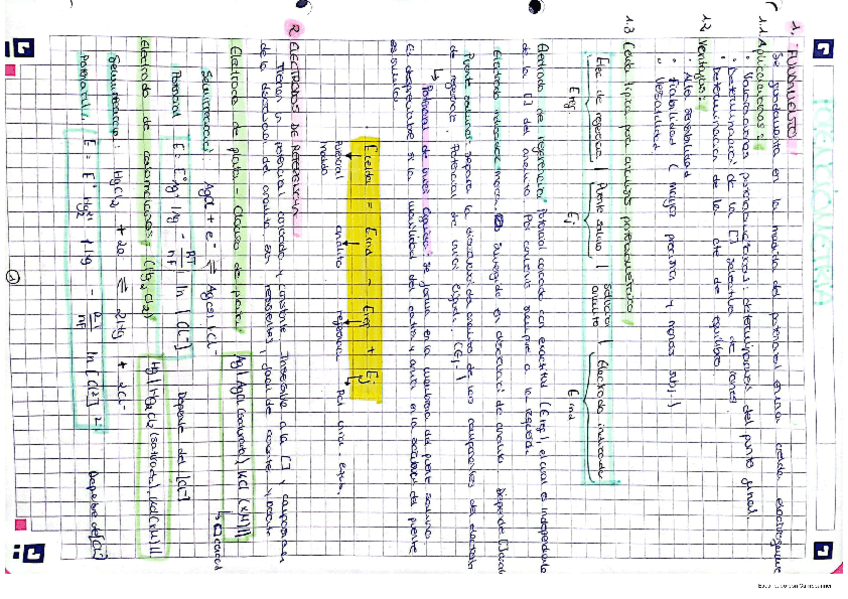 POTENCIOMETRÍA
1. FUNDAMENTO
Se fundamenta en la medida del potencial en una celda electroquímica
1.1 Aplicaciones:
· Valoraciones potenciométricas: determinación del punto final.
· Determinación de la [ ] selectiva de iones.
· Determinación de la cte de equilibrio
1.2 Ventajas:
· Alta sensibilidad
· Fiabilidad (mayor precisión y menos subj.)
· Versatilidad
1.3 Celda típica para análisis potenciométrico
Elec de referencia | Puente salino | Solución analito | Electrodo indicador
Eref. Ej Eind
Electrodo de referencia: Potencial conocido con exactitud (Eref), el cual es independiente
de la [ ] del analito. Por convenio siempre a la izquierda.
Electrodo indicador: sumergido en disolución de analito. Depende [ ]
Puente salino: separa la disolución de analito de los componentes del electrodo
de referencia. Potencial de unión líquida. (Ej)
↳ Potencial de unión líquida: se forma en la membrana del puente salino.
Es despreciable si la movilidad del catión y anión en la disolución del puente
es similar
Ecelda = Eind - Eref + Ej
Potencial medido analito referencia
2. ELECTRODOS DE REFERENCIA
Tienen un potencial conocido y constante. Insensible a la [ ] y composición
de la disolución del analito. Son resistentes,
Electrodo de plata - Cloruro de plata: Ag | AgCl (saturado), KCl (xM) ||
Semirreacción: AgCl + e⁻ ⇌ Ag(s) + Cl⁻
Potencial E = E°Ag/Ag - RT/nF ln [Cl⁻] Depende del [Cl⁻]
Electrodo de calomelanos: (Hg₂Cl₂) Hg | Hg₂Cl₂ (saturado), KCl (xM) ||
Semirreacción: HgCl₂ + 2e ⇌ 2Hg + 2Cl⁻
Potencial: E = E° - RT/nF ln [Cl²] Depende del [Cl⁻]
1